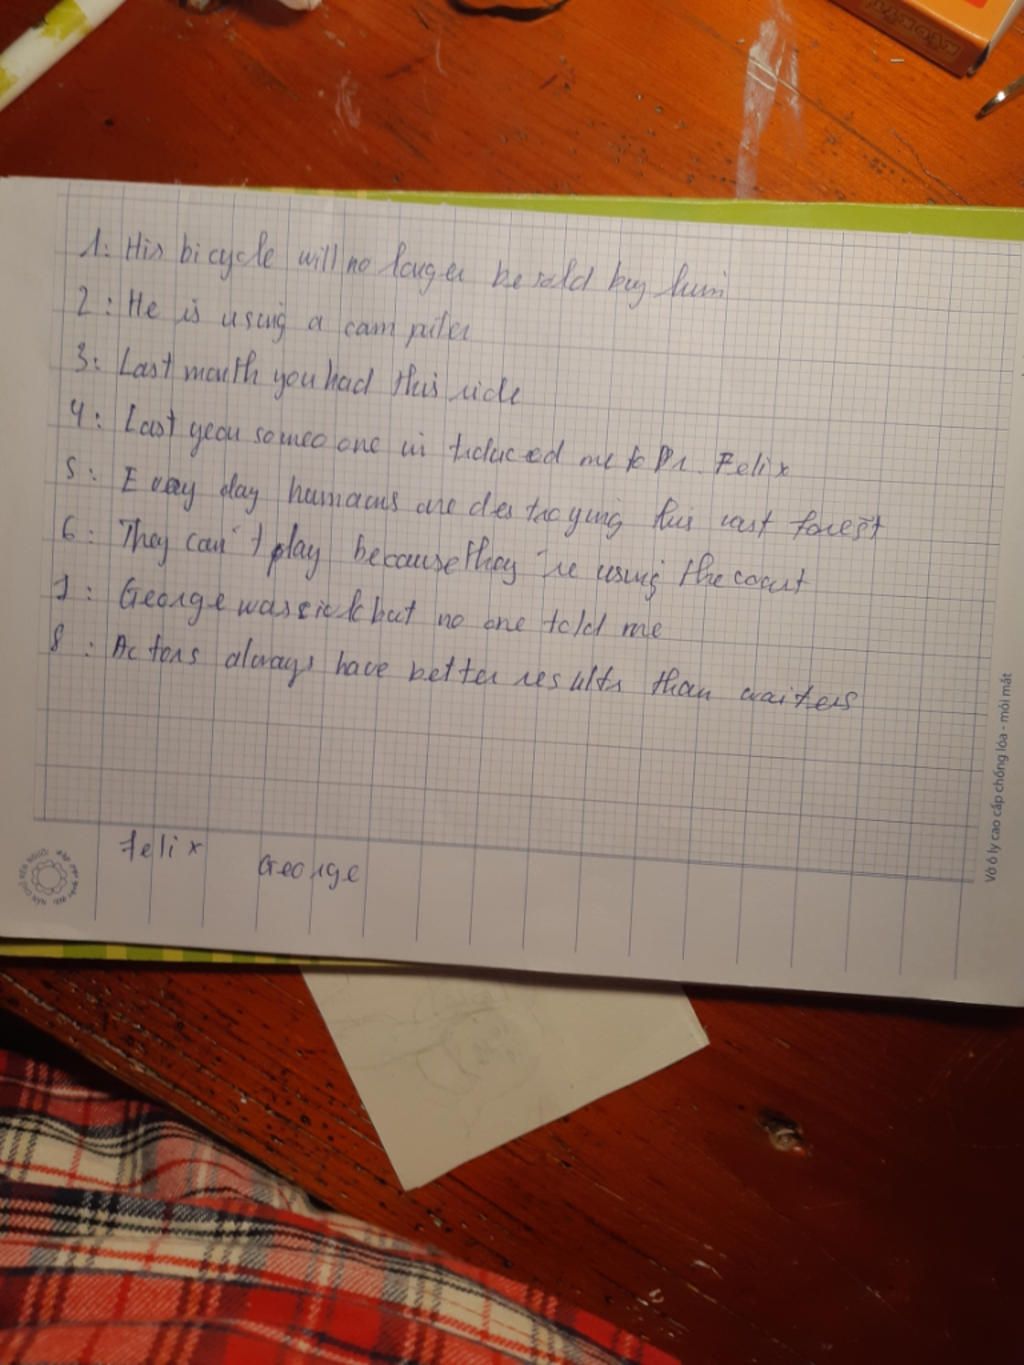 1: His bicycle will no longer be sold buy him
2: He is using a computer
3: Last month you had this ride
4: Last year someo one in troduced me to Dr. Felix
5: Every day humans are destroying this vast forest
6: They can't play because they're using the court
7: George was sick but no one told me
8: Actors always have better results than waiters
Felix George
Vở ô ly cao cấp chống lóa - mỏi mắt